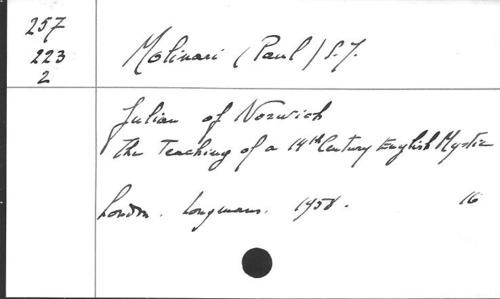 257
223
2
Molinari (Paul) S.J.
Julian of Norwich
the Teaching of a 14th Century English Mystic
London. Longmans. 1958. 16